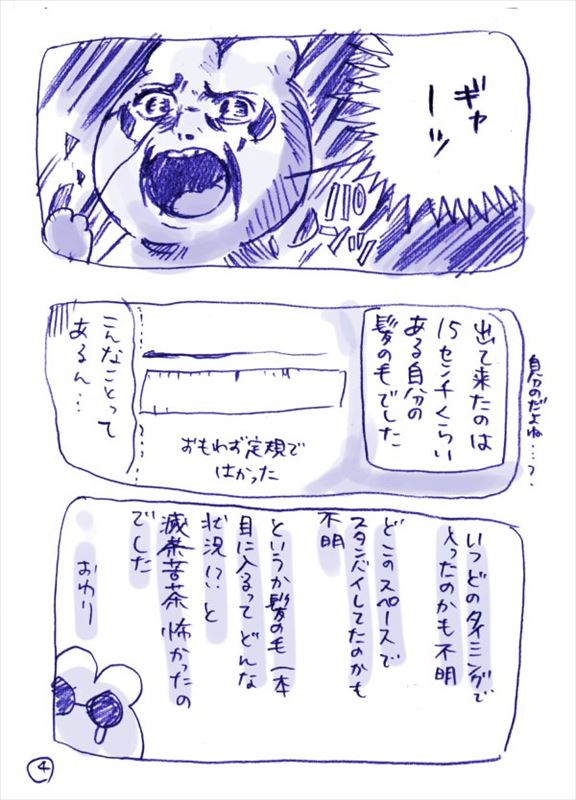 ギャーッ
パローンッ
自分のだよね…?
出て来たのは
15センチくらい
ある自分の
髪の毛でした
おもわず定規で
はかった
こんなことって
あるん…
いつどのタイミングで
入ったのかも不明
どこのスペースで
スタンバイしてたのかも
不明
というか髪の毛一本
目に入るってどんな
状況!?と
滅茶苦茶怖かったの
でした
おわり
4